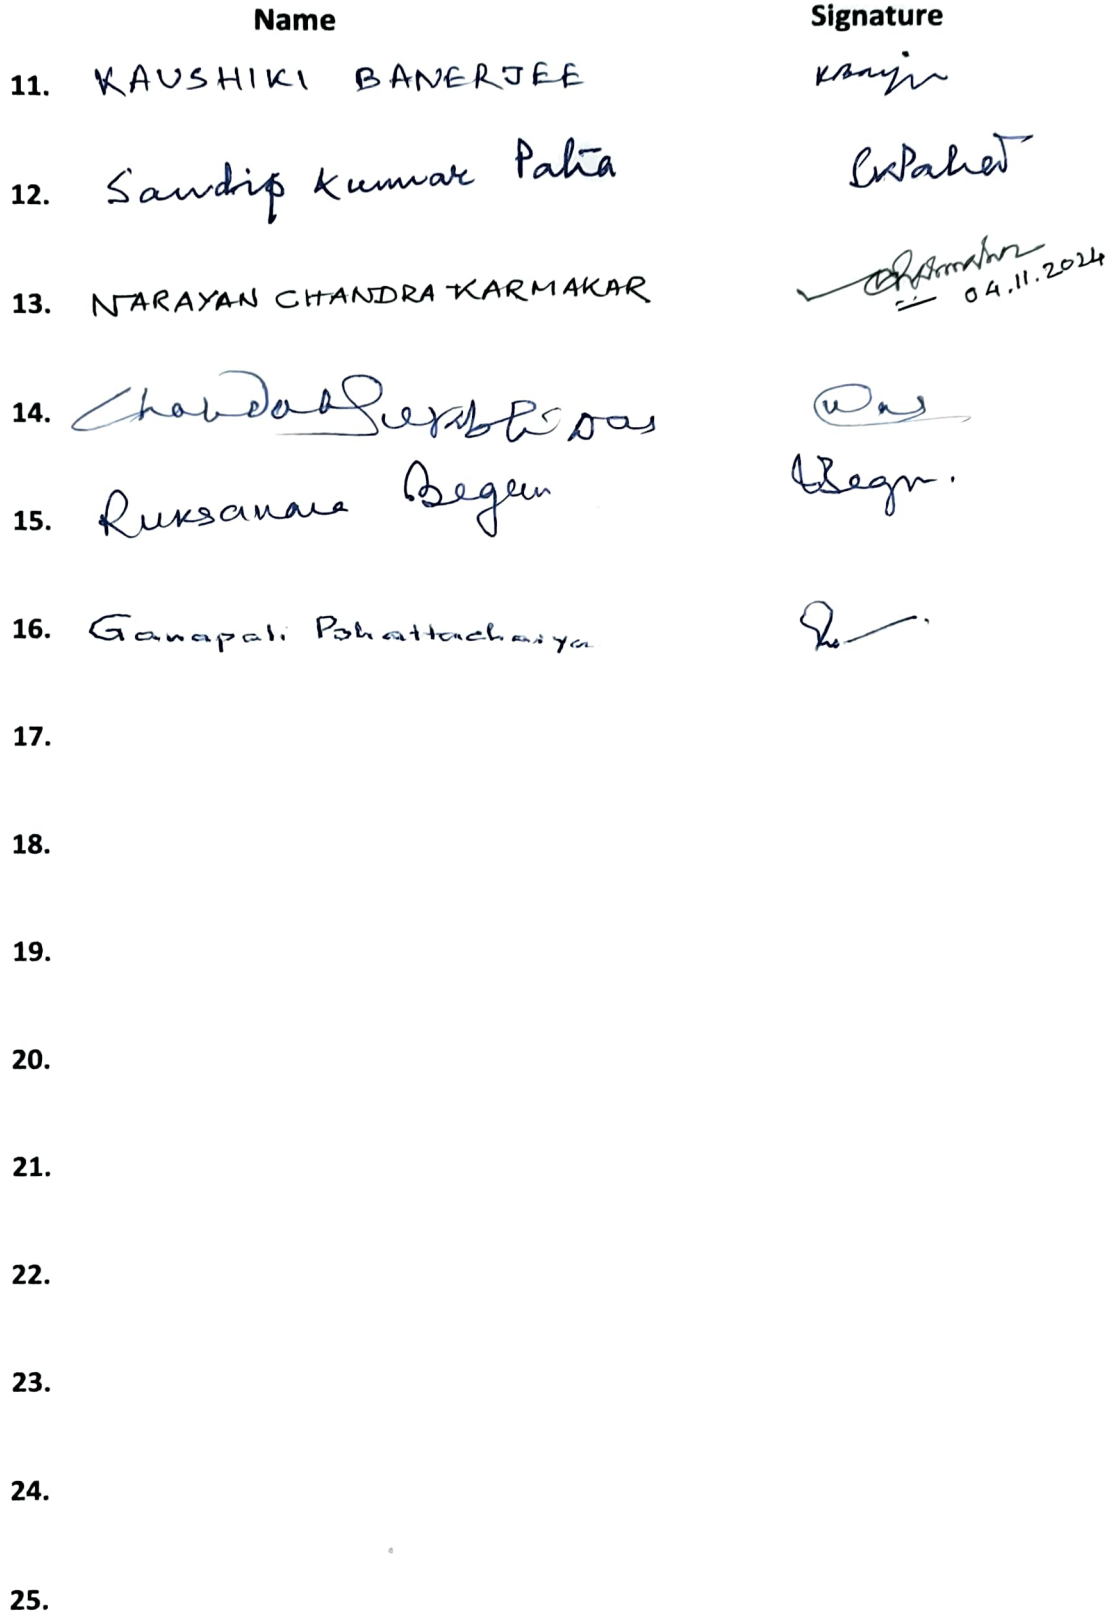 Name Signature
11. KAUSHIKI BANERJEE
12. Sandip Kumar
13. NARAYAN CHANDRA KARMAKAR 04.11.2024
14. Das
15. Ruksanara Begum Begm.
16. Ganapati Bhattacharya
17.
18.
19.
20.
21.
22.
23.
24.
25.